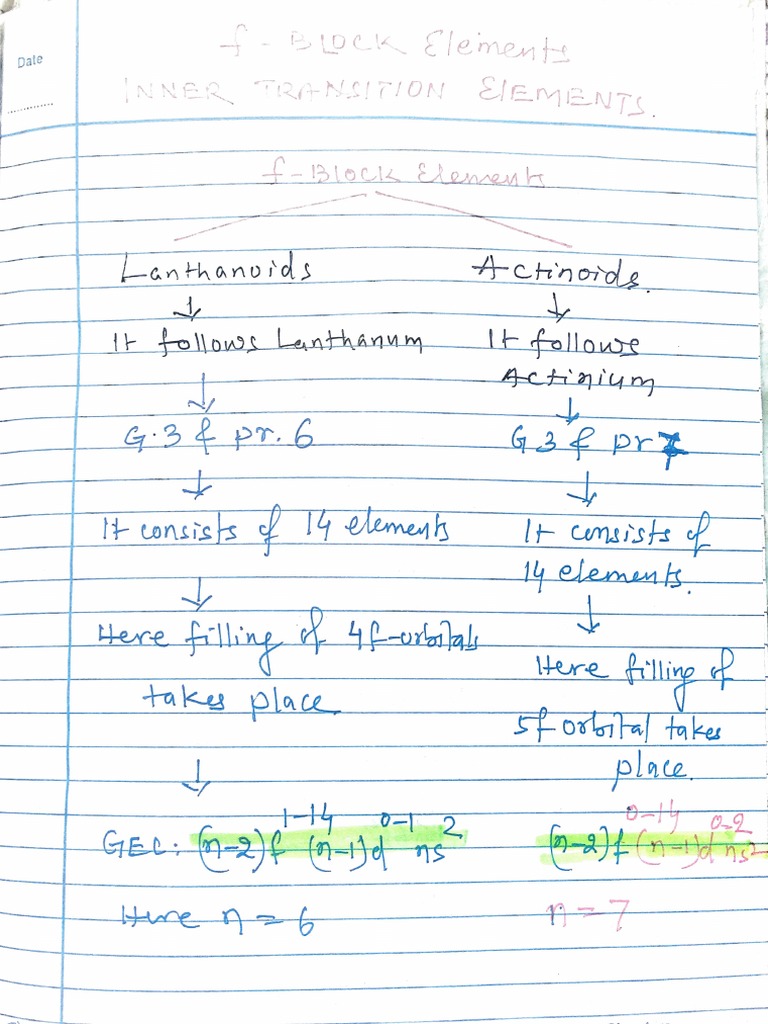 Date
f-BLOCK Elements
INNER TRANSITION ElEMENTS.
f-Block Elements
Lanthanoids
↓
It follows Lanthanum
↓
G.3 & pr. 6
↓
It consists of 14 elements
↓
Here filling of 4f-orbitals
takes place
↓
GEC: (n-2)f¹⁻¹⁴ (n-1)d⁰⁻¹ ns²
Here n = 6
Actinoids.
↓
It follows
Actinium
↓
G 3 & pr 7
↓
It consists of
14 elements.
↓
Here filling of
5f orbital takes
place.
(n-2)f⁰⁻¹⁴ (n-1)d⁰⁻² ns²
n = 7